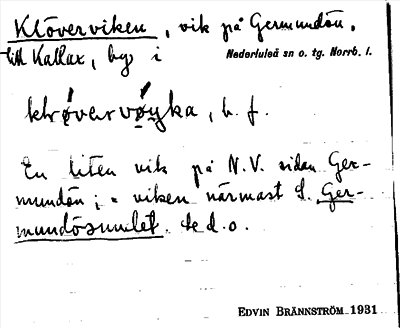 Klöverviken, vik på Germundön,
till Kallax, by i Nederluleå sn o. tg. Norrb. l.
klǿvervǿyka, b. f.
En liten vik på N.V. sidan Ger-
mundön; = viken närmast S. Ger-
mundösundet. se d. o.
EDVIN BRÄNNSTRÖM 1931